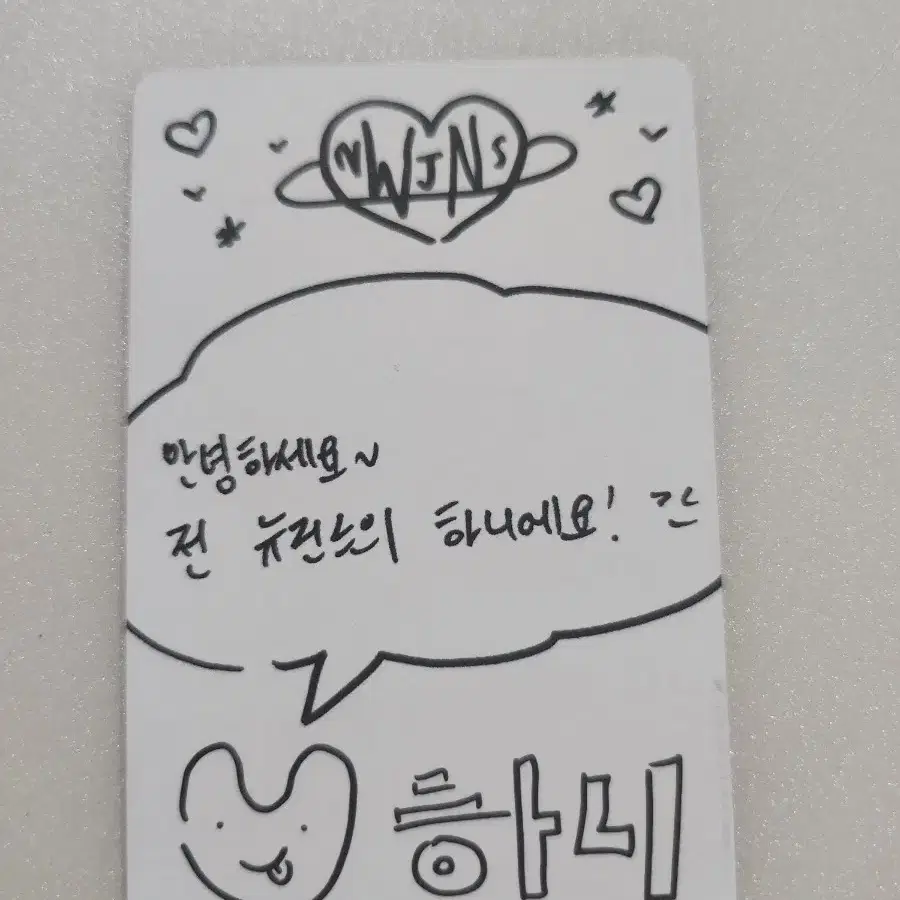 NWJNS
안녕하세요~
전 뉴진스의 하니에요! ㅋㅋ
하니